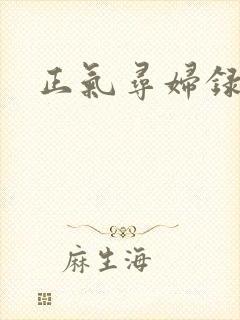 正氣尋婦録
麻生海